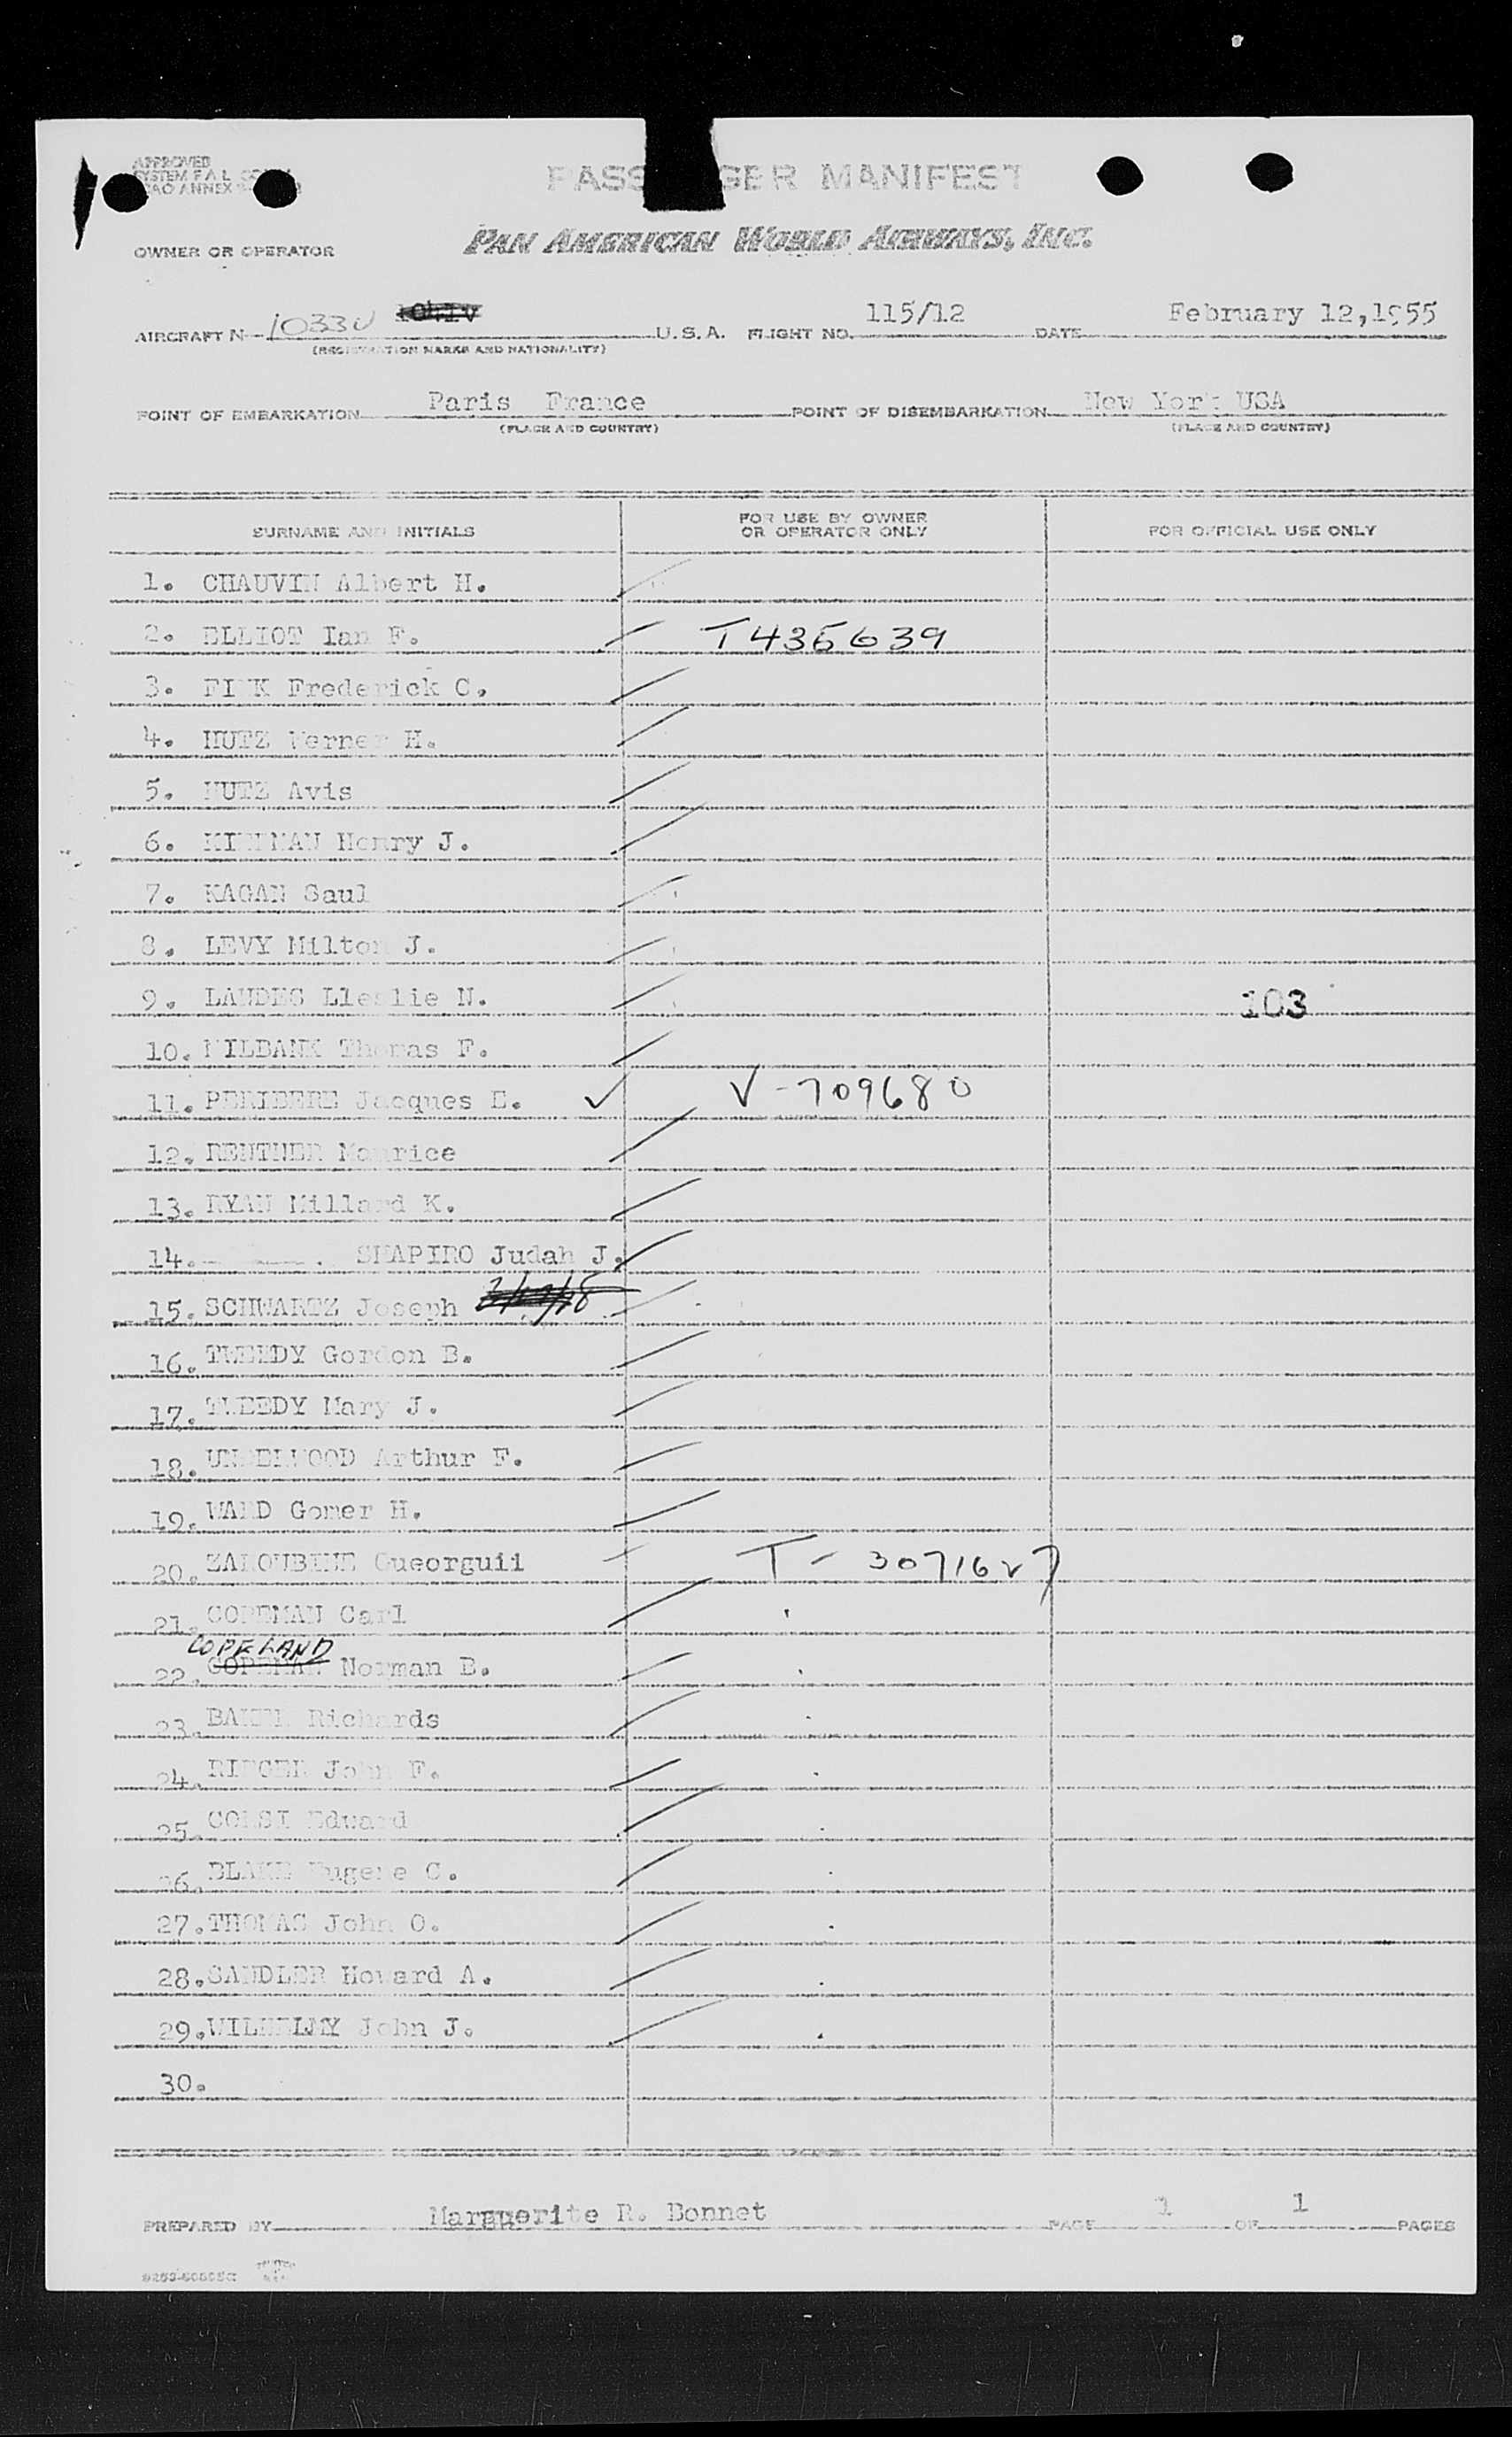 APPROVED
SYSTEM F.A.L.
ICAO ANNEX
PASSENGER MANIFEST
OWNER OR OPERATOR PAN AMERICAN WORLD AIRWAYS, INC.
AIRCRAFT N 1033V U.S.A. FLIGHT NO. 115/12 DATE February 12,1955
(REGISTRATION MARKS AND NATIONALITY)
POINT OF EMBARKATION Paris France POINT OF DISEMBARKATION New York USA
(PLACE AND COUNTRY) (PLACE AND COUNTRY)
SURNAME AND INITIALS FOR USE BY OWNER OR OPERATOR ONLY FOR OFFICIAL USE ONLY
1. CHAUVIN Albert H.
2. ELLIOT Ian F. T435639
3. FINK Frederick C.
4. HUTZ Werner H.
5. HUTZ Avis
6. Henry J.
7. KAGAN Saul
8. LEVY Milton J.
9. LANDES Lleslie N. 103
10. MILBANK Thomas F.
11. PERIBERE Jacques E. ✓ V-709680
12. RENTNER Maurice
13. RYAN Millard K.
14. SHAPIRO Judah J.
15. SCHWARTZ Joseph
16. TWEEDY Gordon B.
17. TWEEDY Mary J.
18. UNDERWOOD Arthur F.
19. WARD Gomer H.
20. ZALOUBINE Gueorguii T-3071627
21. COPEMAN Carl
COPELAND
22. COPEMAN Norman B.
23. BAKER Richards
24. John F.
25. CORSI Edward
26. BLAKE Eugene C.
27. THOMAS John O.
28. SANDLER Howard A.
29. WILHELMY John J.
30.
PREPARED BY Marguerite R. Bonnet PAGE 1 OF 1 PAGES